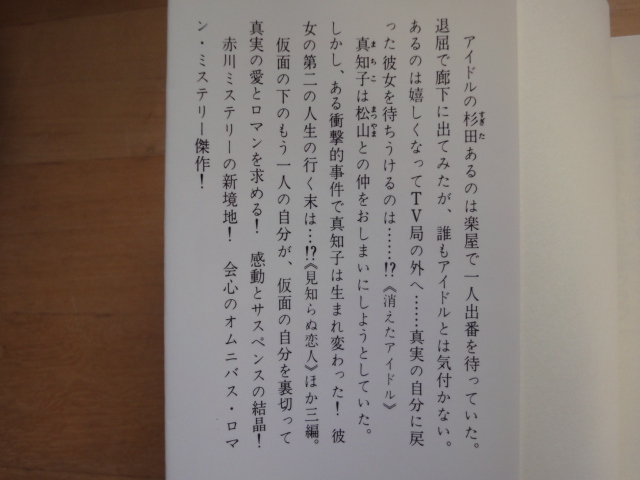 アイドルの杉田あるのは楽屋で一人出番を待っていた。
退屈で廊下に出てみたが、誰もアイドルとは気付かない。
あるのは嬉しくなってTV局の外へ……真実の自分に戻
った彼女を待ちうけるのは……!?《消えたアイドル》
真知子は松山との仲をおしまいにしようとしていた。
しかし、ある衝撃的事件で真知子は生まれ変わった！　彼
女の第二の人生の行く末は…!?《見知らぬ恋人》ほか三編。
仮面の下のもう一人の自分が、仮面の自分を裏切って
真実の愛とロマンを求める！　感動とサスペンスの結晶！
赤川ミステリーの新境地！　会心のオムニバス・ロマ
ン・ミステリー傑作！